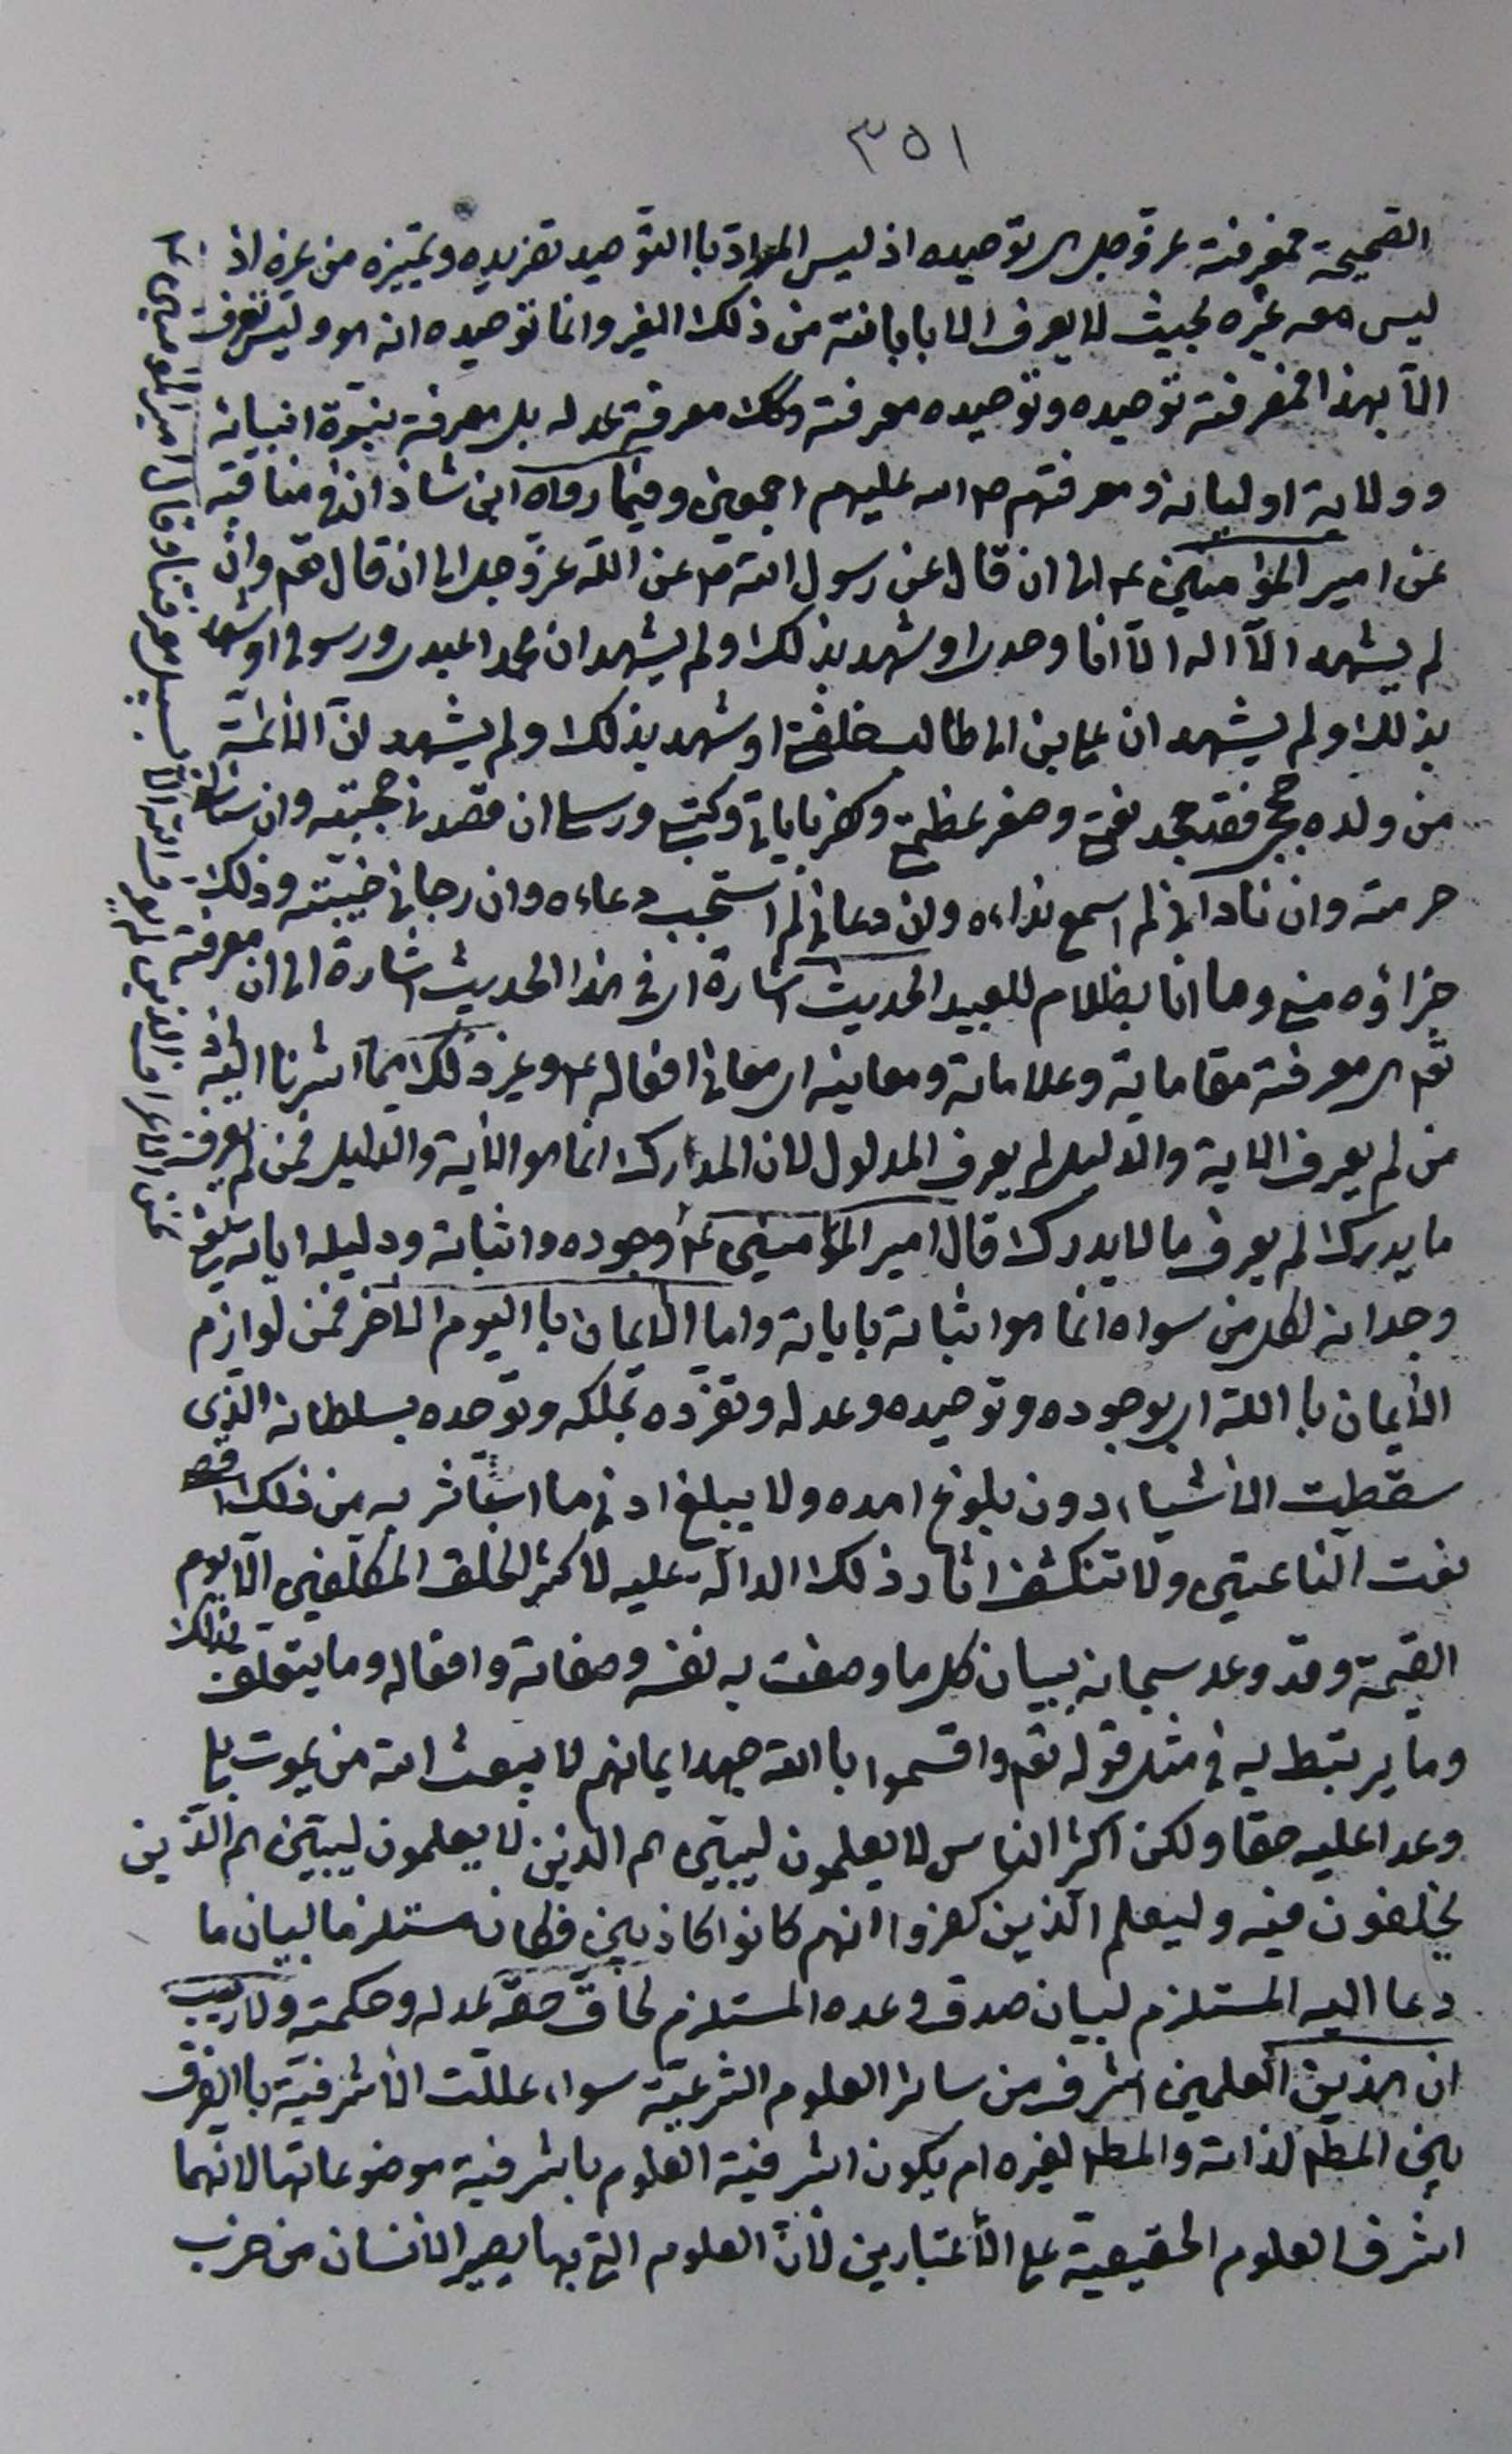 ٣٥١
الصحيحة فمعرفته عز وجل ای توحيده اذ ليس المراد باالتوحيد تفريده وتمييزه من غيره اذ
ليس معه غيره بحيث لا يعرف الا بابانته من ذلك الغير وانما توحيده انه هو وليس تعرف
الّا بهذا فمعرفته توحيده وتوحيده معرفته وكك معرفة عدله بل معرفة بنبوّة انبيائه
وولاية اوليائه ومعرفتهم ص الله عليهم اجمعين وفيما رواه ابن شاذان فی مناقبه
عن امير المؤمنين ع الی ان قال عن رسول الله ص عن الله عز وجل الی ان قال تعم وان
لم يشهد الّا اله الّا انا وحدی او شهد بذلك ولم يشهد ان محمدا عبدی ورسولی او شهد
بذلك ولم يشهد ان علی بن ابی طالب خليفتی او شهد بذلك ولم يشهد انّ الأئمّة
من ولده حججی فقد جحد نعمتی وصغر عظمتی وكفر باياتی وكتبی ورسلی ان قصدنی حجبته وان سئلنی
حرمته وان نادانی لم اسمع نداءه وان دعانی لم استجب دعاءه وان رجانی خيبته وذلك
جزاؤه منی وما انا بظلام للعبيد الحديث اشارة ای فی هذا الحديث اشارة الی ان معرفته
تعم ای معرفة مقاماته وعلاماته ومعانيه ای معانی افعاله ع وغير ذلك مما اشرنا اليه
من لم يعرف الاية والدليل لم يعرف المدلول لان المدارك انما هو الأية والدليل فمن لم يعرف
ما يدرك لم يعرف ما لا يدرك قال امير المؤمنين ع وجوده واثباته ودليله اياته يعنی
وجدانه لكل من سواه انما هو اثباته باياته واما الأيمان با اليوم الأخر فمن لوازم
الأيمان با الله ای بوجوده وتوحيده وعدله وتفرّده بملكه وتوحّده بسلطانه الّذی
سقطت الأشياء دون بلوغ امده ولا يبلغ ادنی ما استأثر به من ذلك اقصی
نعت الناعتين ولا تنكشف اثار ذلك الدالّة عليه لاكثر الخلق المكلّفين الّا يوم
القيمة وقد وعد سبحانه ببيان كل ما وصف به نفسه وصفاته وافعاله وما يتعلق بذلك
وما يرتبط به فی مثل قوله تعم واقسموا با الله جهد ايمانهم لا يبعث الله من يموت بلی
وعدا عليه حقا ولكن اكثر الناس لا يعلمون ليبيّن لهم الذين لا يعلمون ليبيّن لهم الّذين
يختلفون فيه وليعلم الّذين كفروا انهم كانوا كاذبين فكان مستلزما لبيان ما
دعا اليه المستلزم لبيان صدق وعده المستلزم لحاق حقه عدله وحكمته ولا ريب
ان هذين العلمين اشرف من سائر العلوم الشرعيّة سواء عللت الأشرفيّة باالفرق
بين المطم لذاته والمطم لغيره ام يكون اشرفيّة العلوم باشرفية موضوعاتها لانهما
اشرف العلوم الحقيقية علی الأعتبارين لأنّ العلوم التی بها يصير الانسان من حزب